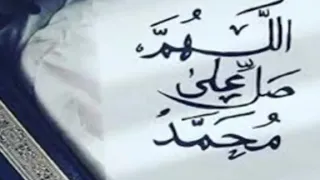 اللَّهُمَّ
صَلِّ عَلَى
مُحَمَّدْ